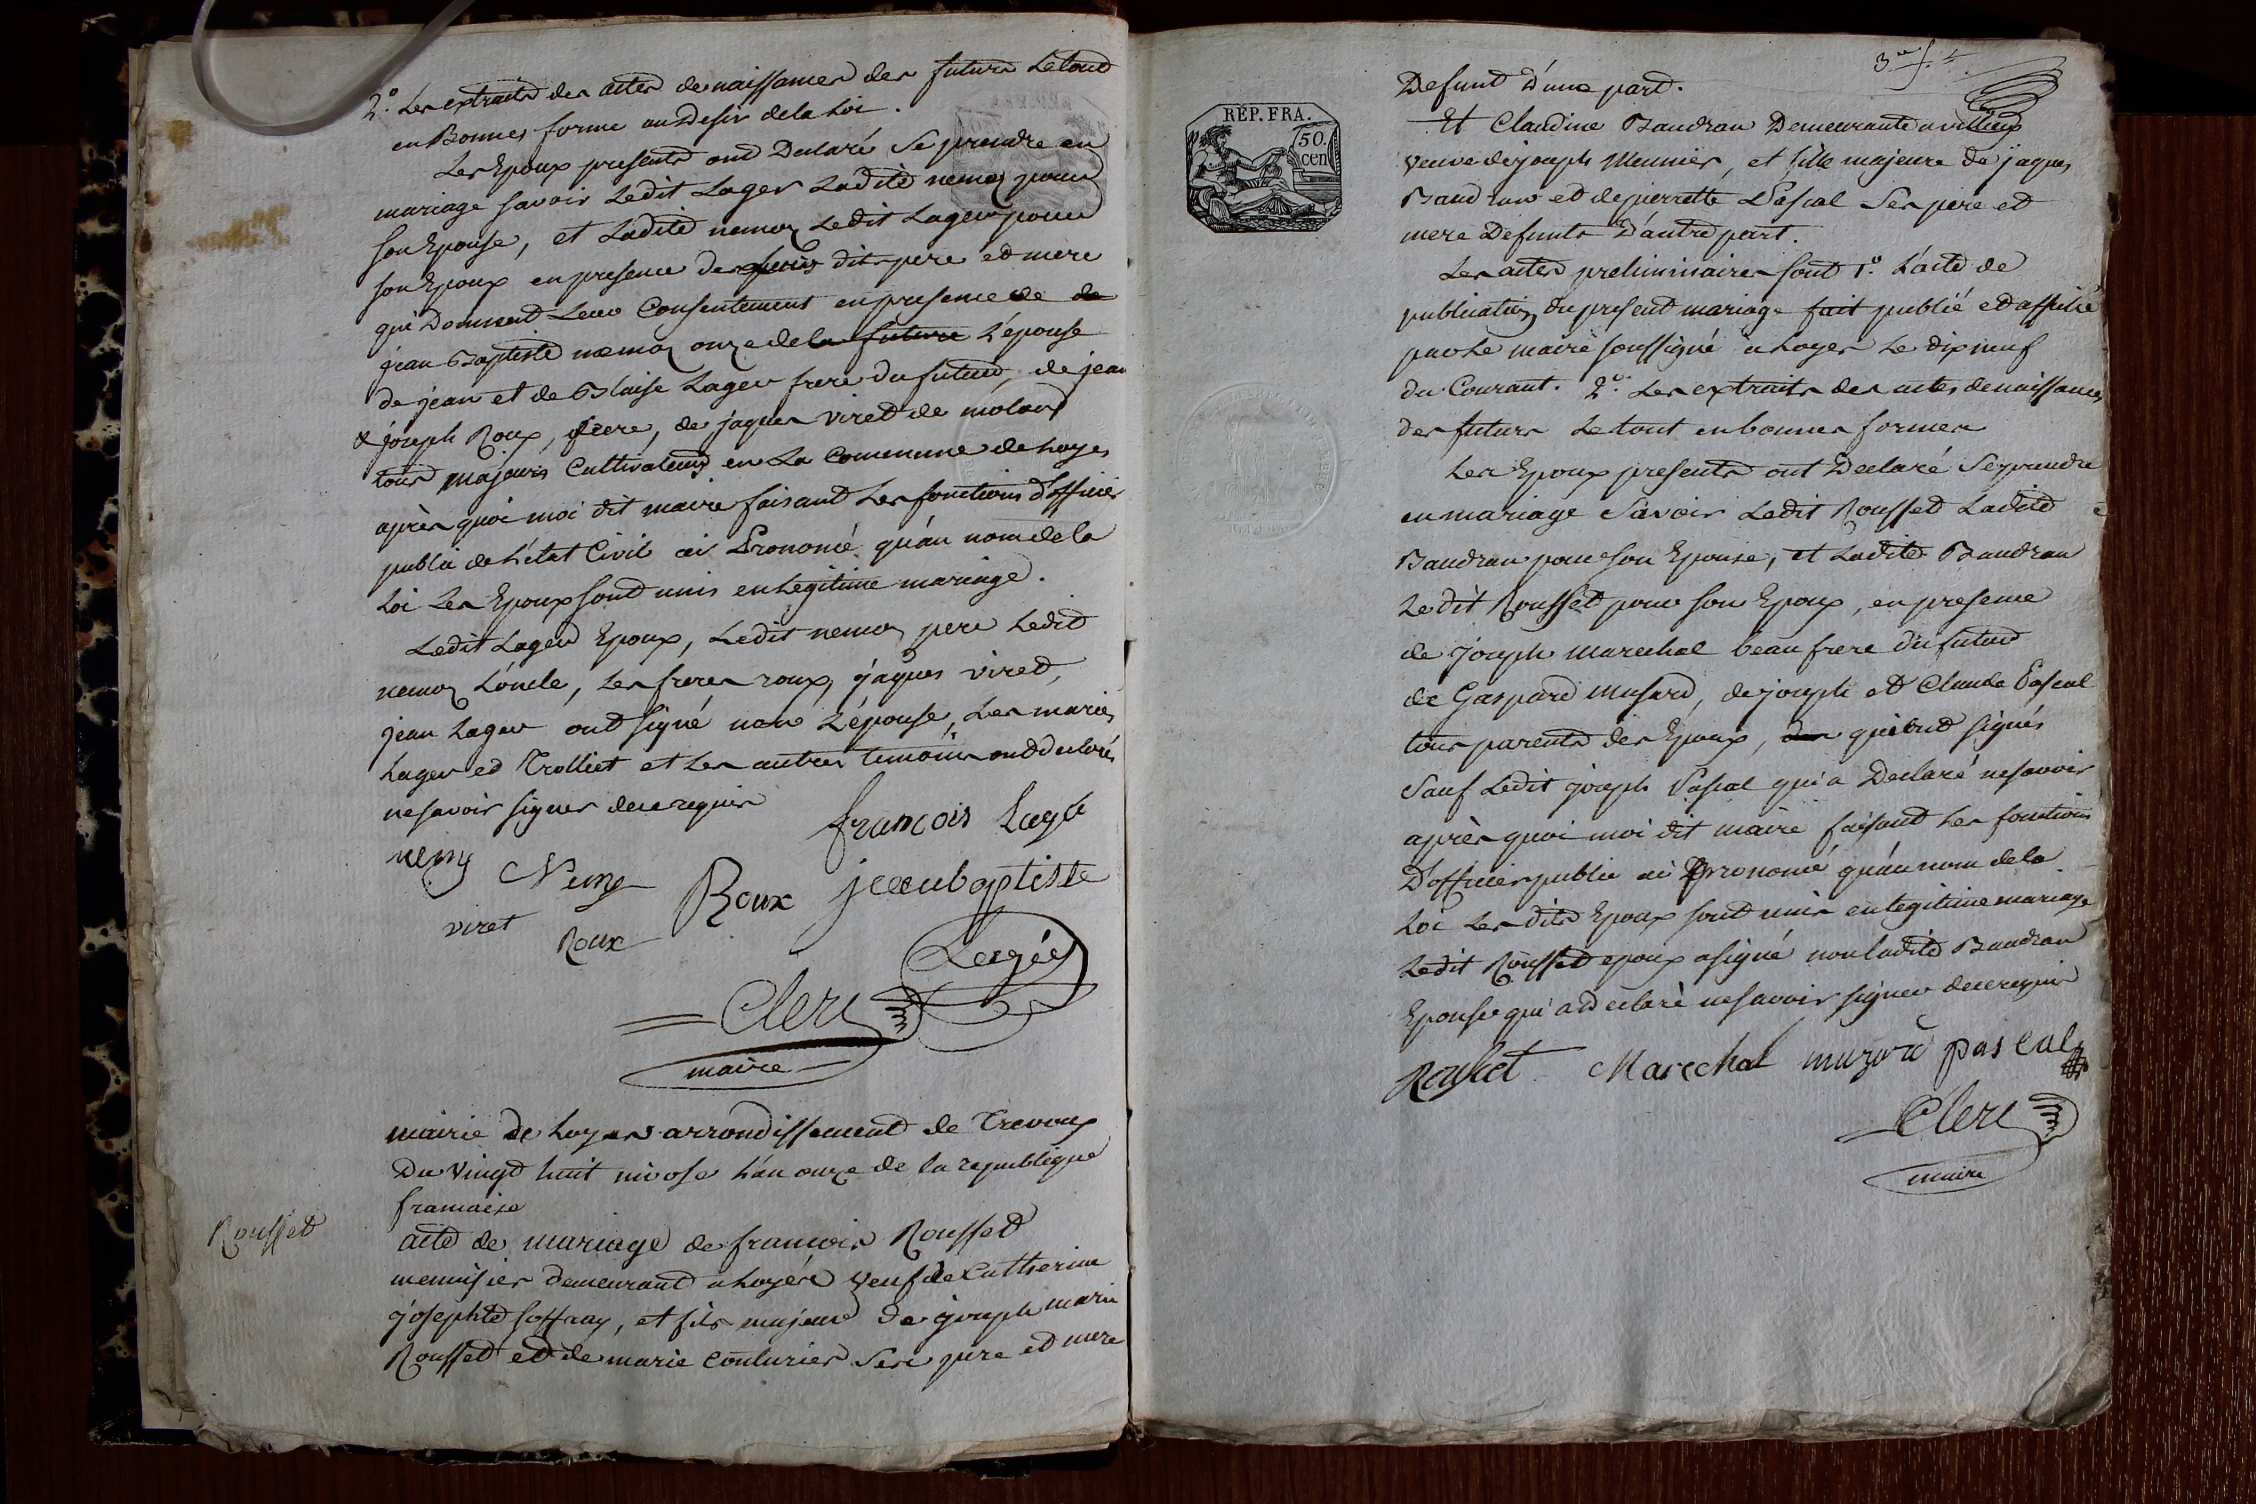 2º. Les extraits des actes de naissances des futurs Le tout
en Bonnes forme au Desir de la Loi.
Les Epoux presents ont Declaré Se prendre en
mariage savoir Ledit Lager Ladite nemoz pour
son Epouse, et Ladite nemoz Ledit Lager pour
son Epoux en presence des susdits pere et mere
qui Donnent Leur Consentement en presence de de
jean Baptiste nemoz oncle de la future L'épouse
de jean et de Blaise Lager frere du futur, de jean
& joseph Roux, frere, de jaques viret de molard
tous majeurs Cultivateurs en La Commune de Loyes
après quoi moi dit maire faisant Les fonctions d'officier
public de L'état Civil ai Prononcé qu'au nom de la
Loi Les Epoux sont unis en Legitime mariage.
Ledit Lager Epoux, Ledit nemoz pere Ledit
nemoz L'oncle, Les freres roux, jaques viret,
jean Lager ont signé non L'épouse, Les mariés
Lager et Trolliet et Les autres temoins ont declaré
ne savoir signer de ce requis
françois Lagé
Roux jean baptiste
viret Roux
Lagér
Clerc
maire
mairie de Loyes arrondissement de Trevoux
Du Vingt huit nivose L'an onze de la republique
francaise
Rousset
acte de mariage de francois Rousset
menuisier demeurant a Loyes veuf de Catherine
josephte Soffray, et fils majeur de joseph marie
Rousset et de marie Couturier Ses pere et mere
3me f.
RÉP. FRA.
50.
cen
Defunt D'une part.
Et Claudine Baudran Demeurante a villieux
veuve de joseph Meunier, et fille majeure de jaques
Baudran et de pierrette Pascal Ses pere et
mere Defunts D'autre part.
Les actes preliminaires sont 1º. L'acte de
publication du present mariage fait publié et affiché
par Le maire soussigné a Loyes Le dix neuf
du Courant. 2º. Les extraits des actes de naissances
des futurs Le tout en bonnes formes
Les Epoux presents ont Declaré Se prendre
en mariage Savoir Ledit Rousset Ladite
Baudran pour son Epouse, et Ladite Baudran
Le dit Rousset pour son Epoux, en presence
de joseph marechal beau frere du futur
de Gaspard Musard, de joseph et Claude Pascal
tous parents des Epoux, qui ont signés
Sauf Ledit joseph Pascal qui a Declaré ne savoir
après quoi moi dit maire faisant Les fonctions
D'officier public ai Prononcé qu'au nom de la
Loi Les dits Epoux sont unis en legitime mariage
Ledit Rousset epoux a signé non ladite Baudran
Epouse qui a declaré ne savoir signer de ce requis
Rousset Marechal muzard pascal
Clerc
maire